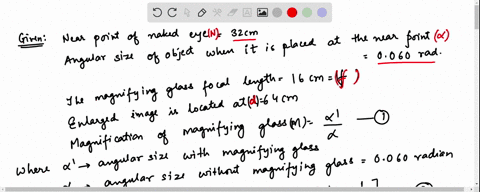 Given: Near point of naked eye(N)= 32cm
Angular size of object when it is placed at the near point (α)
= 0.060 rad.
The magnifying glass focal length = 16 cm = (f)
Enlarged image is located at(d)=64cm
Magnification of magnifying glass(M)= α'/α —①
Where α' → angular size with magnifying glass
angular size without magnifying glass = 0.060 radian